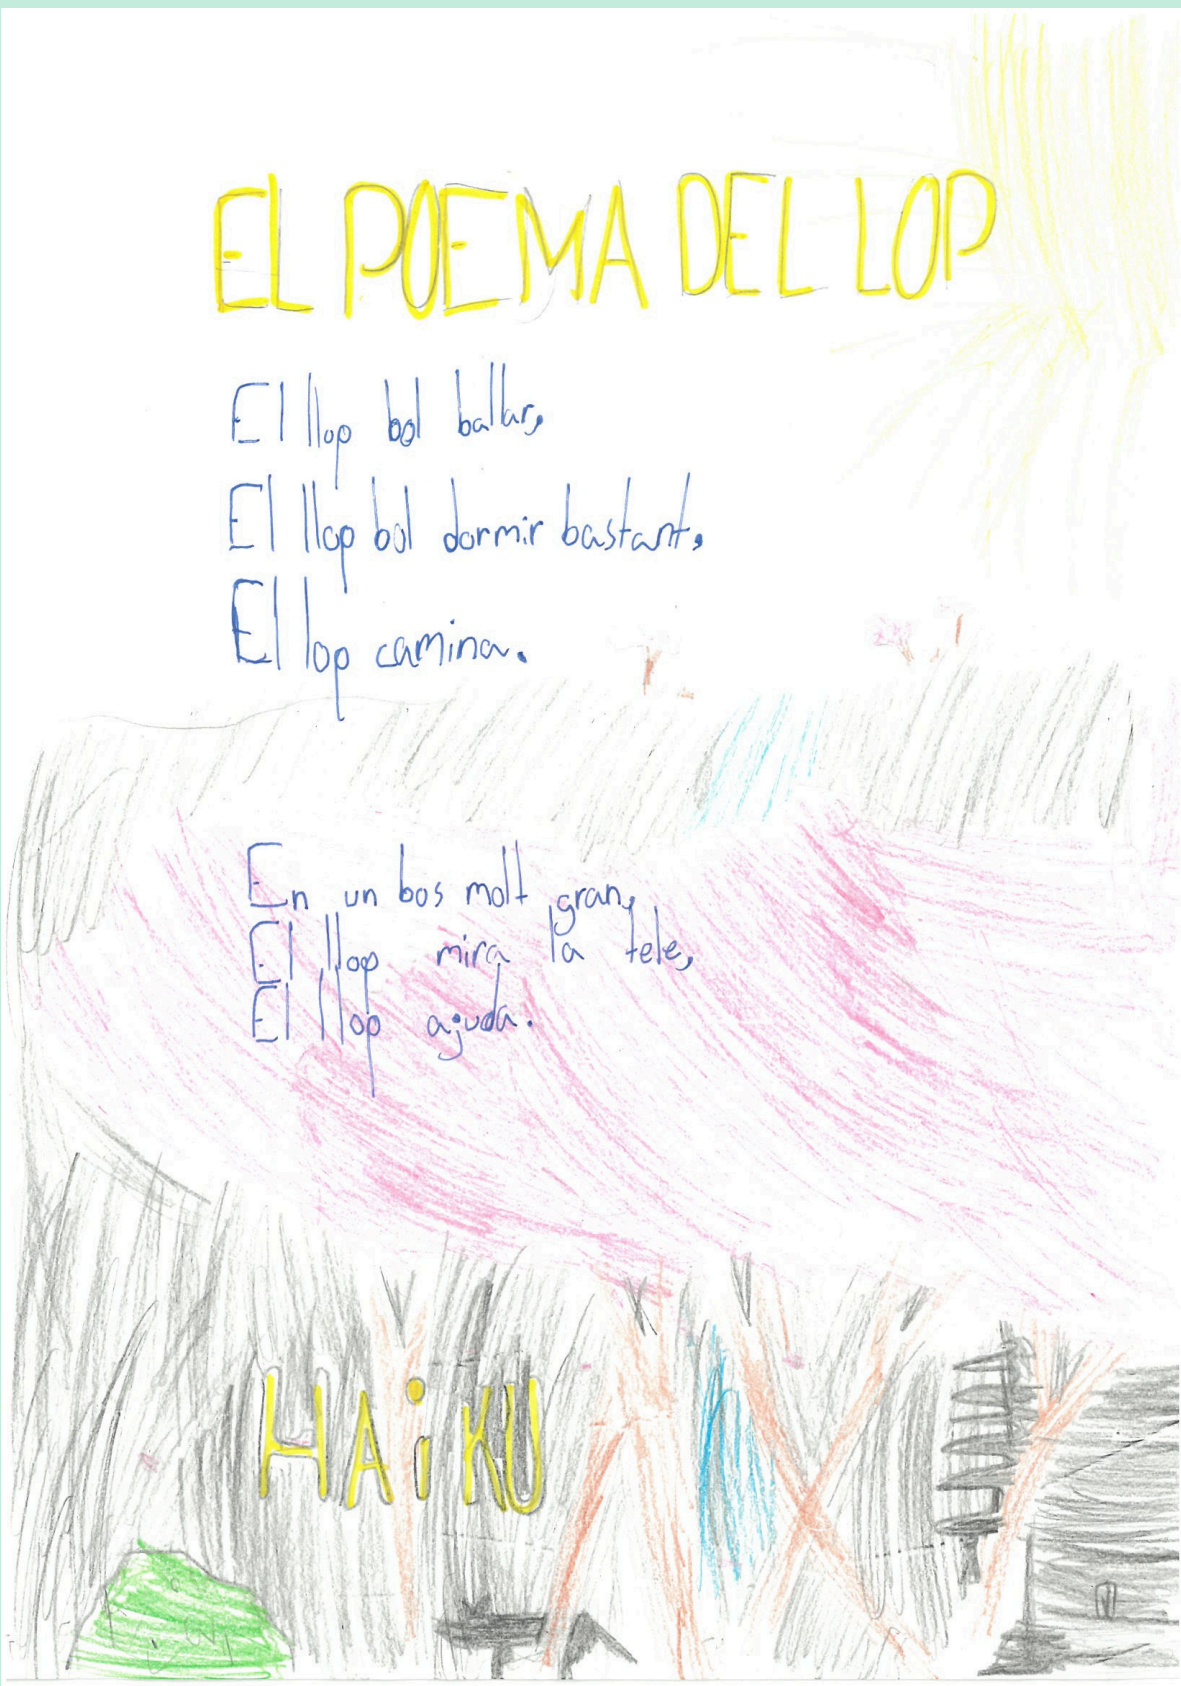 EL POEMA DEL LOP
El llop bol ballar,
El llop bol dormir bastant,
El lop camina.
En un bos molt gran,
El llop mira la tele,
El llop ajuda.
HAiKU